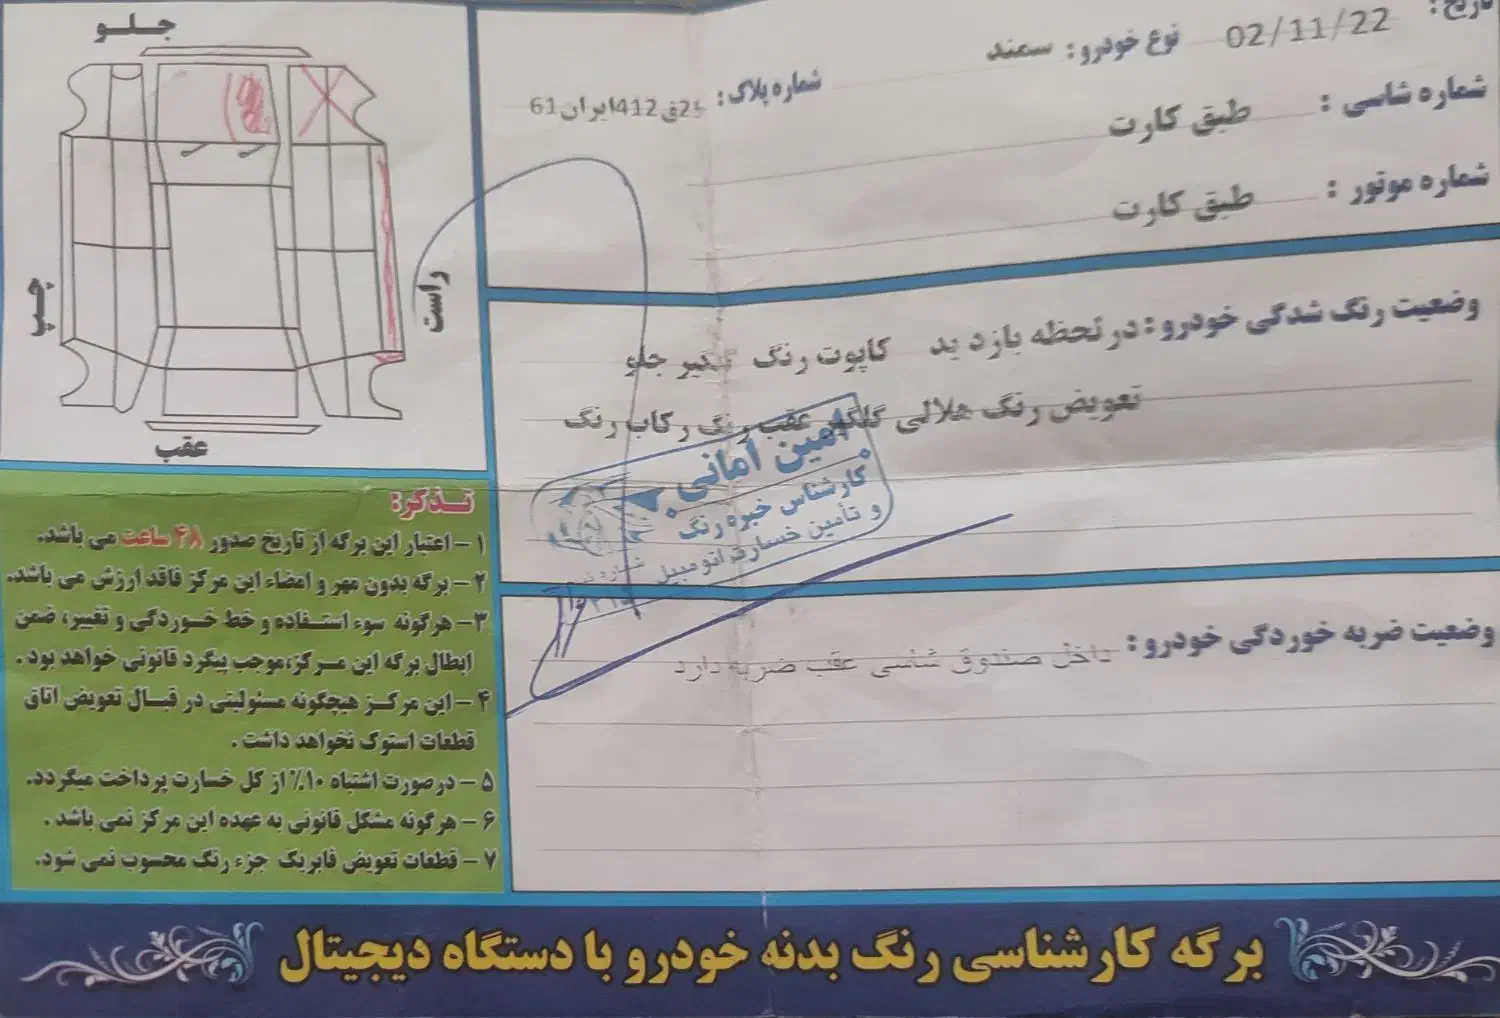 تاریخ: 02/11/22 نوع خودرو: سمند
شماره پلاک: 25ق412ایران61
شماره شاسی: طبق کارت
شماره موتور: طبق کارت
وضعیت رنگ شدگی خودرو: در لحظه بازدید کاپوت رنگ گلگیر جلو
تعویض رنگ هلالی گلگیر عقب رنگ رکاب رنگ
امین امانی
کارشناس خبره رنگ
و تأمین خسارت اتومبیل
وضعیت ضربه خوردگی خودرو: داخل صندوق شاسی عقب ضربه دارد
جلو
چپ
راست
عقب
تذکر:
۱- اعتبار این برگه از تاریخ صدور ۴۸ ساعت می باشد.
۲- برگه بدون مهر و امضاء این مرکز فاقد ارزش می باشد.
۳- هرگونه سوء استفاده و خط خوردگی و تغییر، ضمن
ابطال برگه این مرکز، موجب پیگرد قانونی خواهد بود.
۴- این مرکز هیچگونه مسئولیتی در قبال تعویض اتاق
قطعات استوک نخواهد داشت.
۵- درصورت اشتباه ۱۰٪ از کل خسارت پرداخت میگردد.
۶- هرگونه مشکل قانونی به عهده این مرکز نمی باشد.
۷- قطعات تعویض فابریک جزء رنگ محسوب نمی شود.
برگه کارشناسی رنگ بدنه خودرو با دستگاه دیجیتال